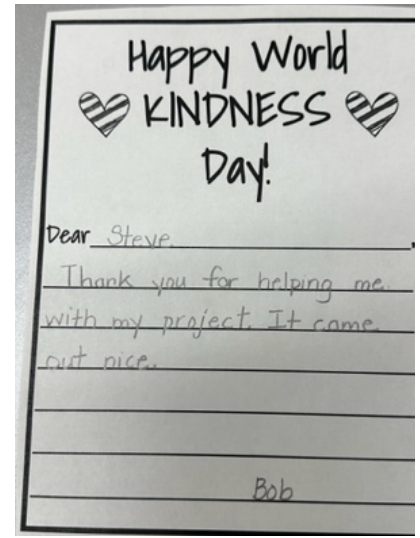 Happy World
KINDNESS
Day!
Dear Steve,
Thank you for helping me
with my project. It came
out nice.
Bob